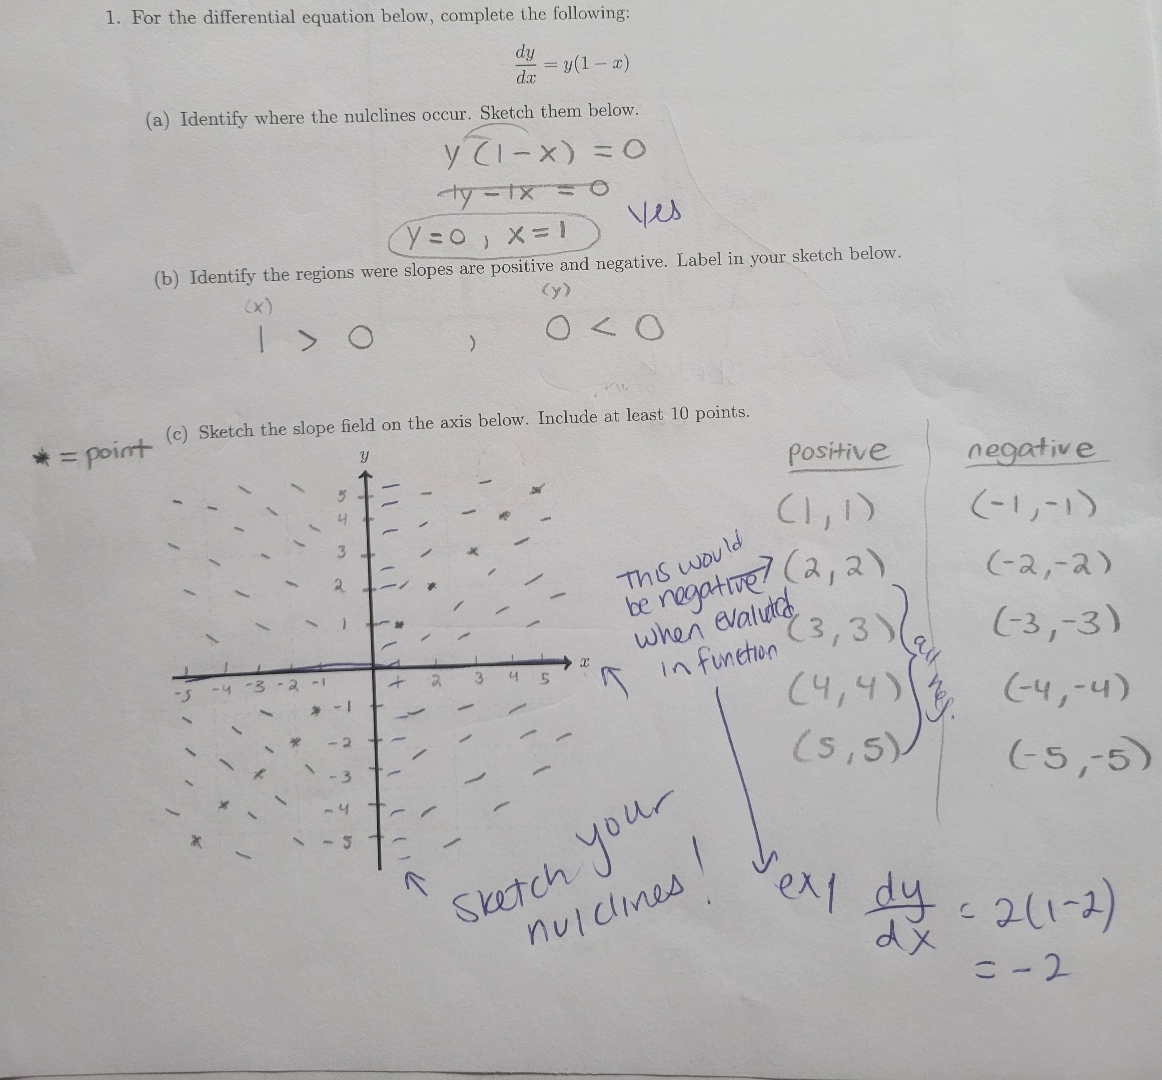 1. For the differential equation below, complete the following:
dy/dx = y(1 − x)
(a) Identify where the nulclines occur. Sketch them below.
y(1-x) = 0
1y - 1x = 0
yes
y=0, x=1
(b) Identify the regions were slopes are positive and negative. Label in your sketch below.
(x) (y)
1 > 0 , 0 < 0
(c) Sketch the slope field on the axis below. Include at least 10 points.
* = point
y
5
4
3
2
1
x
-5 -4 -3 -2 -1 1 2 3 4 5
-1
-2
-3
-4
-5
positive negative
(1,1) (-1,-1)
(2,2) (-2,-2)
(3,3) (-3,-3)
(4,4) (-4,-4)
(5,5) (-5,-5)
all neg.
This would
be negative
when evaluted
in function
Sketch your
nulclines!
ex/ dy/dx = 2(1-2)
= -2